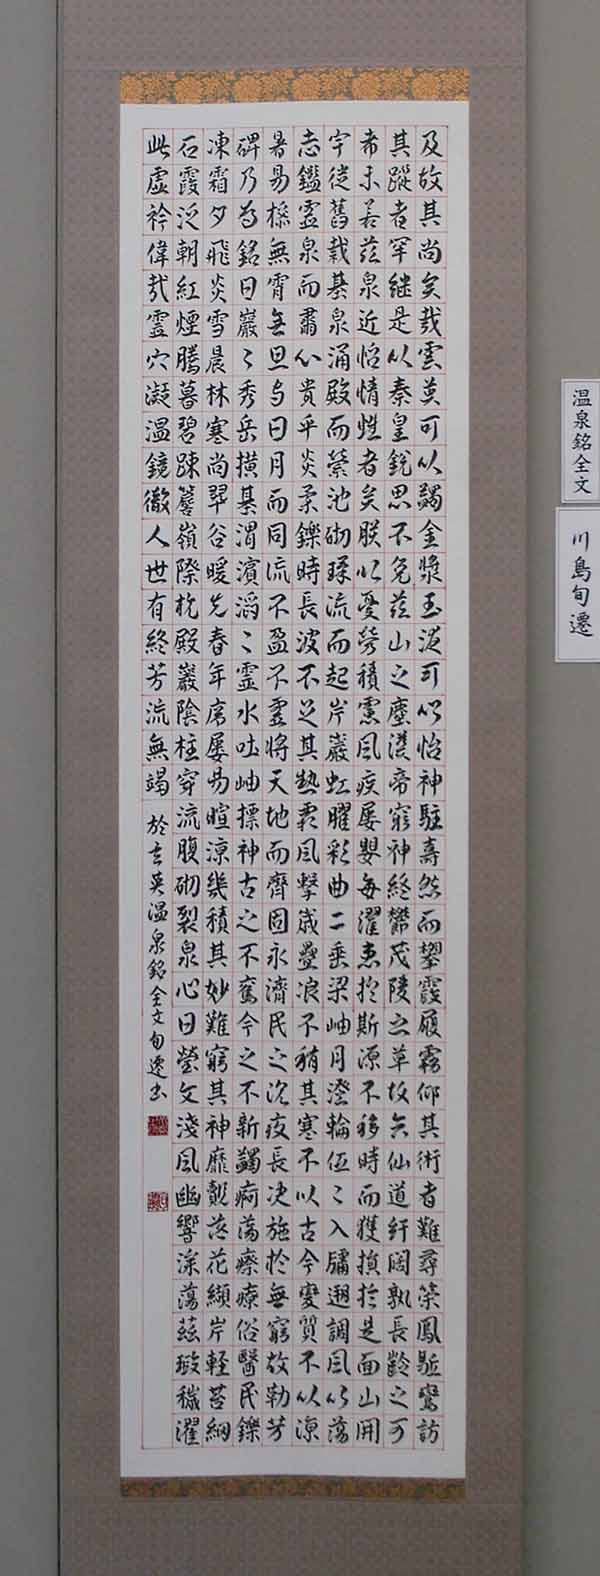 及故其尚矣哉雲英可以蠲金漿玉液可以怡神駐壽然而攀霞履霧仰其術者難尋策鳳駈鸞訪
其蹤者罕継是以秦皇鋭思不免茲山之塵漢帝窮神終欝茂陵之草故知仙道紆闊孰長齡之可
希未若茲泉近怡情性者矣朕以憂勞積慮風疾屡嬰毎濯患於斯源不移時而獲損於是面山開
宇従舊裁基泉涌殿而縈池砌環流而起岸巌虹曜彩曲二垂梁岫月澄輪伍〻入牖遡調風以蕩
志鑑霊泉而肅心貴乎炎柔鑠時長波不足其熱霜風撃歳疊浪不稍其寒不以古今變質不以涼
暑易操無霄無旦与日月而同流不盈不虚将天地而齊固永濟民之沈疾長決施於無窮故勒芳
碑乃為銘曰巖〻秀岳横基渭濱滔〻霊水吐岫摽神古之不舊今之不新蠲痾蕩瘵療俗醫民鑠
凍霜夕飛炎雪晨林寒尚翠谷暖先春年序屡易暄涼幾積其妙難窮其神靡測落花纈岸軽苔網
石霞泛朝紅煙騰暮碧疎簷嶺際抗殿巖陰柱穿流腹砌裂泉心日瑩文淺風幽響深蕩茲瑕穢濯
此虚衿偉哉霊穴凝温鏡徹人世有終芳流無竭 於玄英温泉銘全文旬遷書
温泉銘全文
川島旬遷